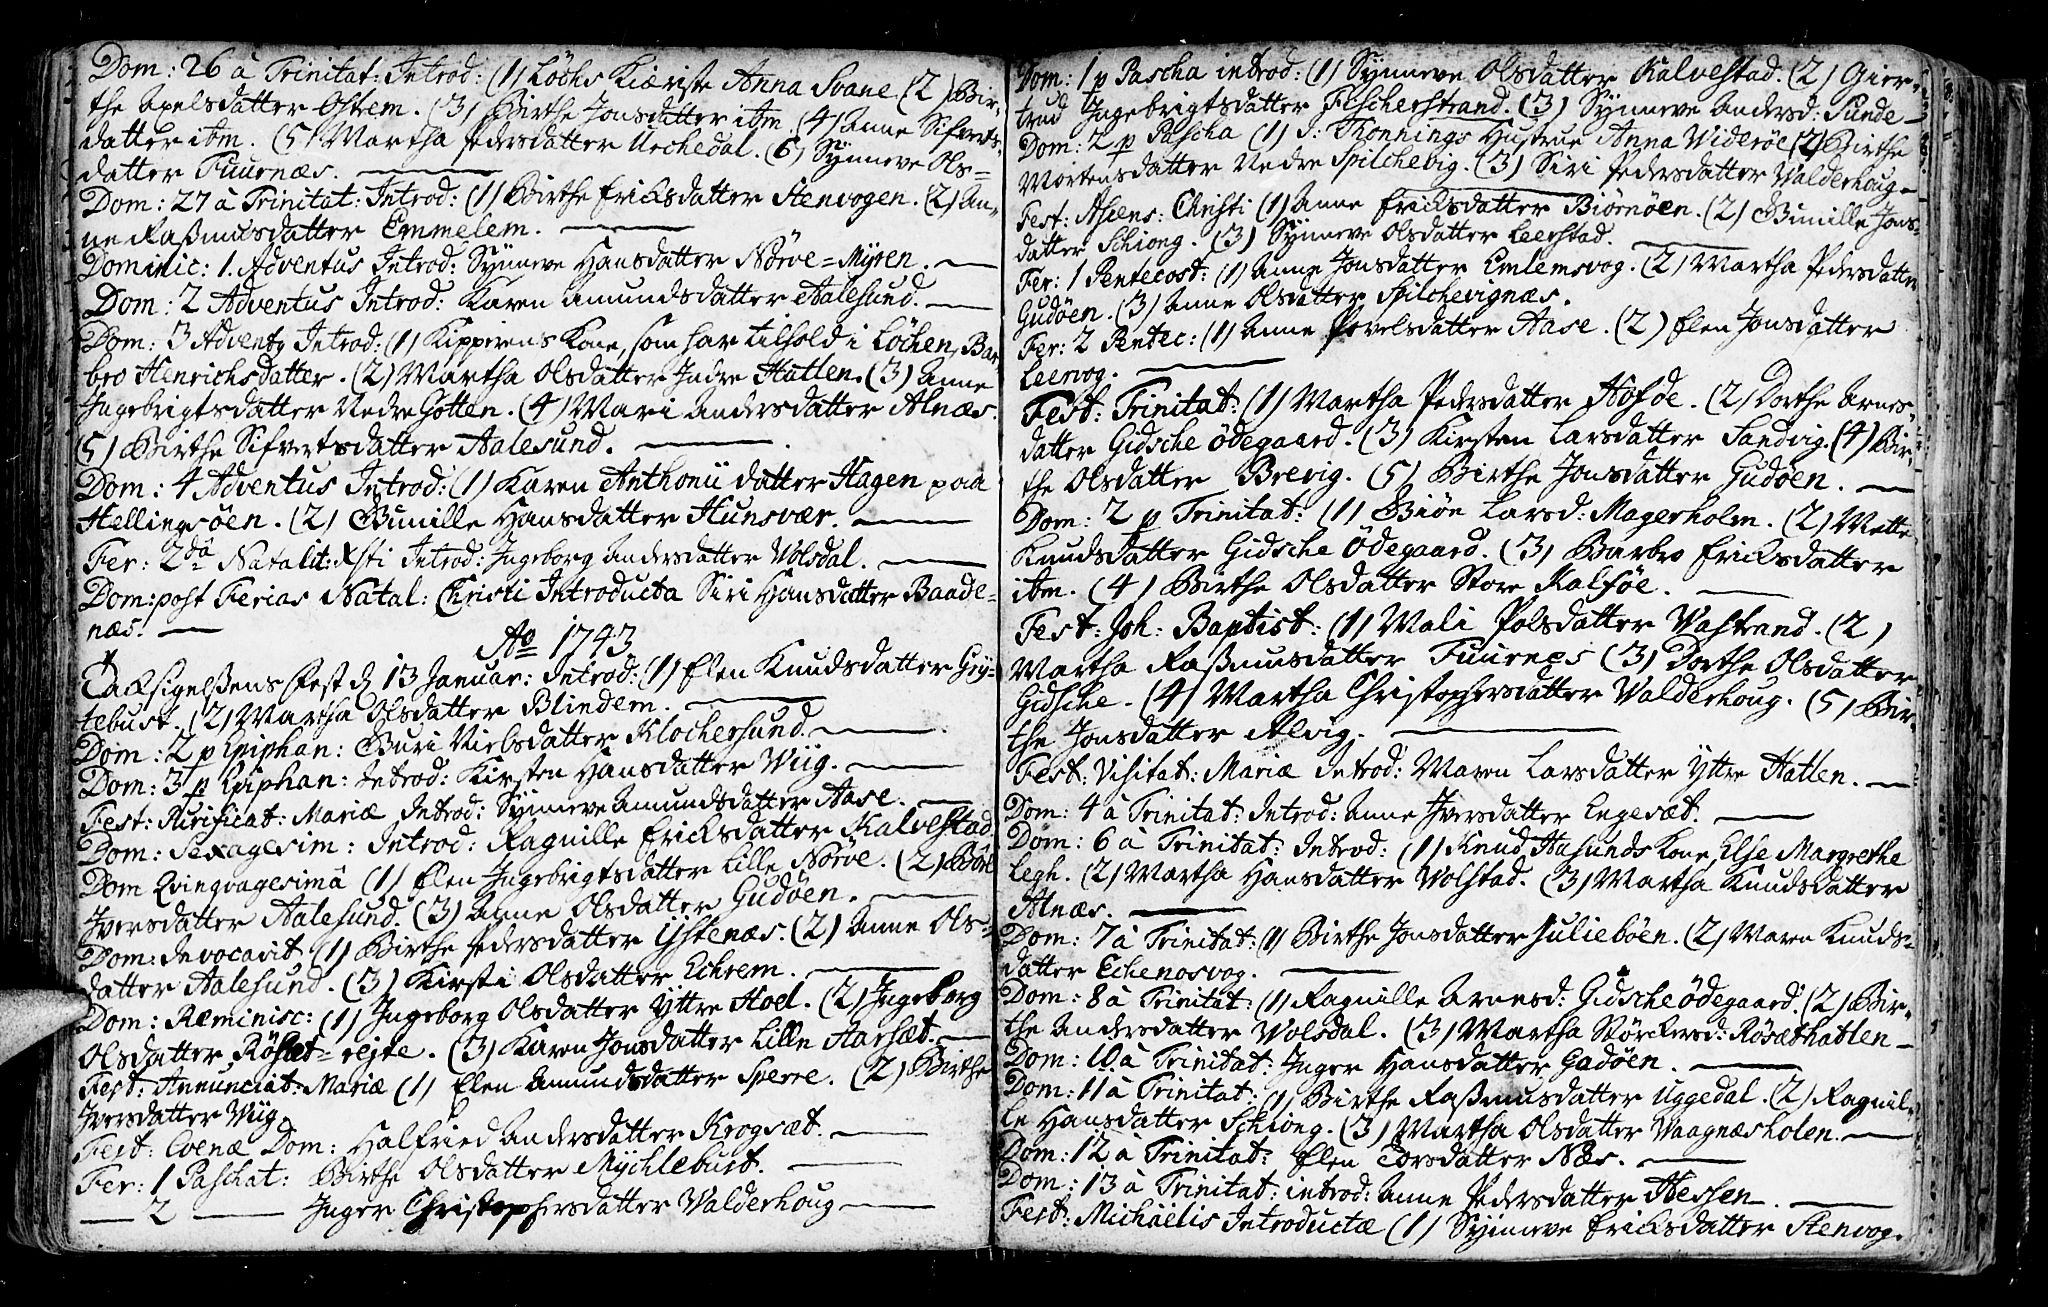 Dom: 26 à Trinitat: Introd: (1) Löchs Kiæriste Anna Svane (2) Bir-
the Axelsdatter Ostem. (3) Birthe Jonsdatter ibm. (4) Anne Siferts-
datter ibm. (5) Martha Pedersdatter Uechedal. (6) Synneve Ols=
datter Fuurnæs.
Dom: 27 à Trinitat: Introd: (1) Birthe Ericksdatter Stenvogen. (2) An-
ne Raßmusdatter Emmelem.
Dominic: 1. Adventus Introd: Synneve Hansdatter Nörve=Myren.
Dom: 2 Adventus Introd: Karen Amundsdatter Aalesund.
Dom: 3 Advent9 Introd: (1) Kipperens Kone, som har tilhold i Löchen, Bar-
bro Henrichsdatter. (2) Martha Olsdatter Indre Hatlen. (3) Anne
Ingebrigtsdatter Nedre Gotten. (4) Mari Andersdatter Alnæs.
(5) Birthe Sifvertsdatter Aalesund.
Dom: 4 Adventus Introd: (1) Karen Anthonii datter Hagen paa
Hellingsöen. (2) Gunille Hansdatter Hunsvær.
Fer: 2dâ Natalit: Xsti Introd: Ingeborg Andersdatter Volsdal.
Dom: post Ferias Natal: Christi Introducta Siri Hansdatter Baade=
næs.
Ao 1743
Taksigelßens Fest d 13 Januar: Introd: (1) Elen Knudsdatter Gry-
tebust. (2) Martha Olsdatter Blindem.
Dom: 2 p Epiphan: Guri Nielsdatter Klochersund.
Dom: 3 p Epiphan: Introd: Kirsten Hansdatter Wiig.
Fest: Purificat: Mariæ Introd: Synneve Amundsdatter Aase.
Dom: Sexagesim: Introd: Ragnille Ericksdatter Kalvestad
Dom Qvinqvagesimâ (1) Elen Ingebrigtsdatter Lille Nörve. (2) Börl
Iversdatter Aalesund. (3) Anne Olsdatter Gudöen.
Dom: Invocavit (1) Birthe Pedersdatter Ystenæs. (2) Anne Ols-
datter Aalesund. (3) Kirsti Olsdatter Echrem.
Dom: Reminisc: (1) Ingeborg Olsdatter Yttre Hoel. (2) Ingeborg
Olsdatter Röset=rejte. (3) Karen Jonsdatter Lille Aarsæt.
Fest: Annunciat: Mariæ (1) Elen Amundsdatter Sperre. (2) Birthe
Iversdatter Wiig
Fest: Coenæ Dom: Halfried Andersdatter Krogsæt.
Fer: 1 Paschat: Birthe Olsdatter Mychlebust.
— 2 — Inger Christophersdatter Valderhoug
Dom: 1 p Pascha introd: (1) Synneve Olsdatter Kalvestad. (2) Gier-
trud Ingebrigtsdatter Fischerstrand. (3) Synneve Andersd: Sunde-
Dom: 2 p Pascha (1) S: Thonnings Hustrue Anna Wideröe (2) Birthe
Mortensdatter Nedre Spilchevig. (3) Siri Pedersdatter Valderhoug-
Fest: Ascens: Christi (1) Anne Ericksdatter Biörnöen. (2) Gunille Jons-
datter Schiong. (3) Synneve Olsdatter Leerstad.
Fer: 1 Pentecost: (1) Anne Jonsdatter Emlemsvog. (2) Martha Pedersdatter
Gudöen. (3) Anne Olsdatter Spilchevignæs.
Fer: 2 Pentec: (1) Anne Povelsdatter Aase. (2) Elen Jonsdatter
Leervog.
Fest: Trinitat: (1) Martha Pedersdatter Hofde. (2) Dorthe Arnes-
datter Gidsche Ödegaard. (3) Kirsten Larsdatter Sandvig. (4) Bir-
the Olsdatter Brevig. (5) Birthe Jonsdatter Gudöen.
Dom: 2 p Trinitat: (1) Giön Larsd: Magerholm. (2) Mette
Knudsdatter Gidsche Ödegaard. (3) Barbro Ericksdatter
ibm. (4) Birthe Olsdatter Store Kalsöe.
Fest: Joh: Baptist: (1) Mali Polsdatter Vastrand. (2)
Martha Raßmusdatter Fuurnes (3) Dorthe Olsdatter
Gidsche. (4) Martha Christophersdatter Valderhoug. (5) Bir-
the Jonsdatter Alvig.
Fest: Visitat: Mariæ Introd: Maren Larsdatter Yttre Hatlen.
Dom: 4 à Trinitat: Introd: Anne Iversdatter Engesæt.
Dom: 6 à Trinitat: Introd: (1) Knud Aasunds Kone, Else Margrethe
Legh. (2) Martha Hansdatter Volstad. (3) Martha Knudsdatter
Alnæs.
Dom: 7 à Trinitat: (1) Birthe Jonsdatter Julieböen. (2) Maren Knuds-
datter Echenosvog.
Dom: 8 à Trinitat: (1) Ragnille Arnesd: Gidsche Ödegaard. (2) Bir-
the Andersdatter Volsdal. (3) Martha Störckersd: Rösæthatlen-
Dom: 10 à Trinitat: Inger Hansdatter Gadöen.
Dom: 11 à Trinitat: (1) Birthe Raßmusdatter Uggedal. (2) Ragnil-
le Hansdatter Schiong. (3) Martha Olsdatter Vaagnæsholen.
Dom: 12 à Trinitat: Elen Torsdatter Næs.
Dom: 13 à Trinitat: introd: Anne Pedersdatter Hessen
Fest: Michaëlis Introductæ (1) Synneve Ericksdatter Stenvog.